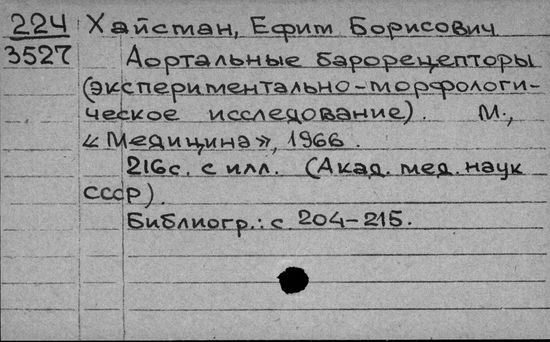 224 Хайсман, Ефим Борисович
3527 Аортальные барорецепторы
(экспериментально-морфологи-
ческое исследование). М.,
«Медицина», 1966.
216с. с илл. (Акад. мед. наук
СССР).
Библиогр.: с 204-215.